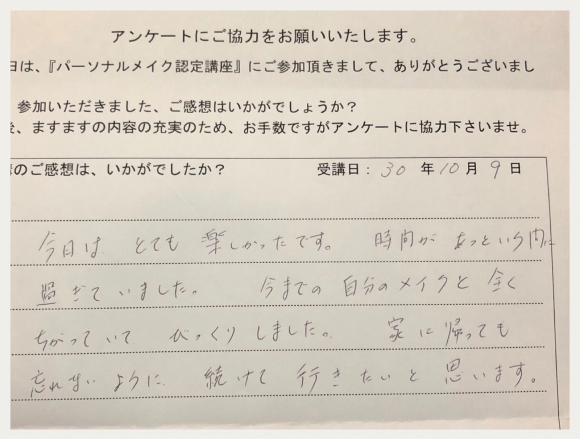 アンケートにご協力をお願いいたします。
日は、『パーソナルメイク認定講座』にご参加頂きまして、ありがとうございまし
参加いただきました、ご感想はいかがでしょうか?
後、ますますの内容の充実のため、お手数ですがアンケートに協力下さいませ。
のご感想は、いかがでしたか? 受講日: 30 年 10 月 9 日
今日は とても 楽しかったです。 時間が あっという間に
過ぎて いました。 今までの 自分の メイクと 全く
ちがっていて びっくり しました。 家に 帰っても
忘れないように 続けて 行きたいと 思います。